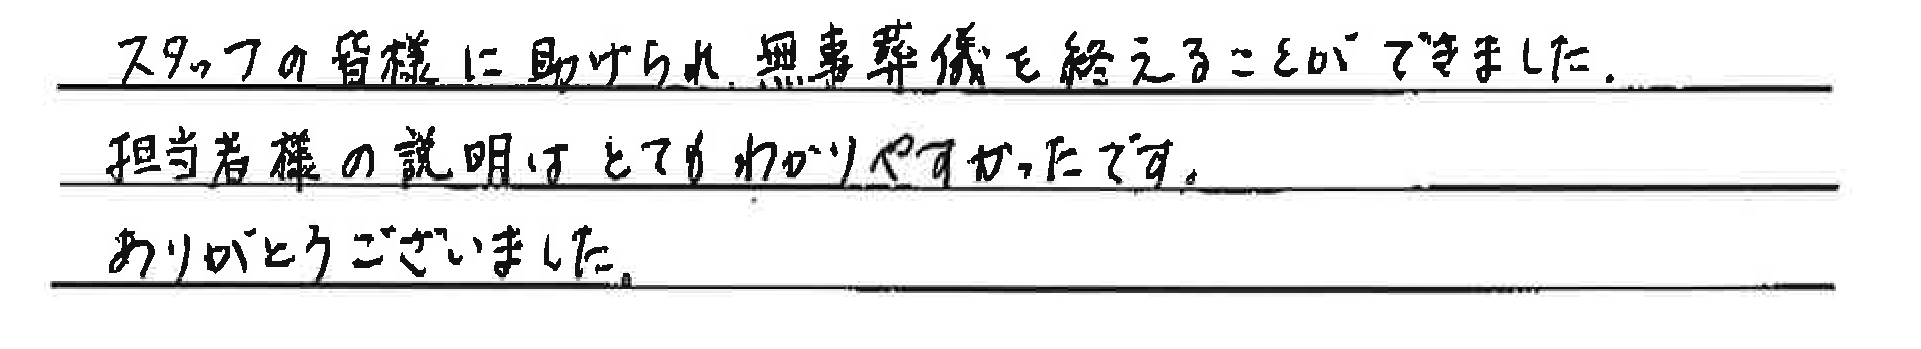 スタッフの皆様に助けられ、無事葬儀を終えることができました。
担当者様の説明はとてもわかりやすかったです。
ありがとうございました。